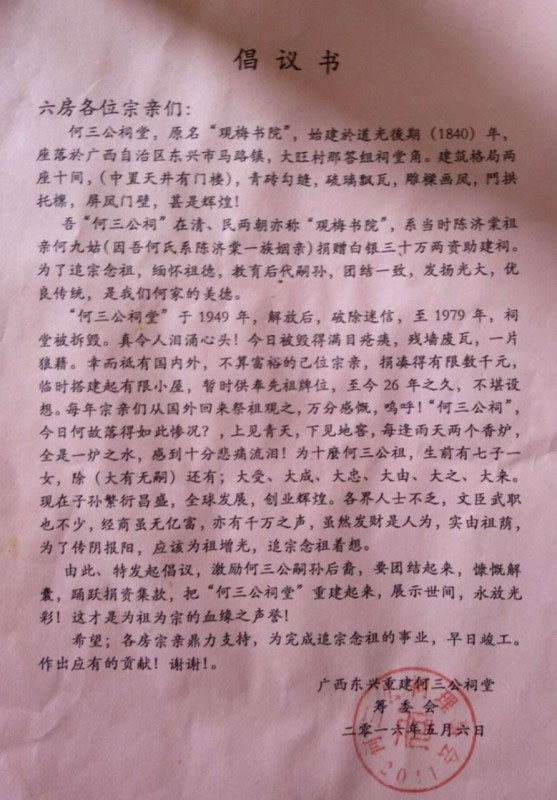 倡议书
六房各位宗亲们：
何三公祠堂，原名“观梅书院”，始建於道光後期（1840）年，
座落於广西自治区东兴市马路镇，大旺村那答组祠堂角。建筑格局两
座十间，（中置天井有门楼），青砖勾缝，琉璃飘瓦，雕樑画凤，門拱
托檩，屏凤门壁，甚是辉煌！
吾“何三公祠”在清、民两朝亦称“观梅书院”，系当时陈济棠祖
亲何九姑（因吾何氏系陈济棠一族姻亲）捐赠白银三十万两资助建祠。
为了追宗念祖，缅怀祖德，教育后代嗣孙，团结一致，发扬光大，优
良传统，是我们何家的美德。
“何三公祠堂”于1949年，解放后，破除迷信，至1979年，祠
堂被拆毁。真令人泪涌心头！今日被毁得满目疮痍，残墙废瓦，一片
狼籍。幸而祗有国内外，不算富裕的己位宗亲，捐凑得有限数千元，
临时搭建起有限小屋，暂时供奉先祖牌位，至今26年之久，不堪设
想。每年宗亲们从国外回来祭祖观之，万分感慨，呜呼！“何三公祠”，
今日何故落得如此惨况？，上见青天，下见地窖，每逢雨天两个香炉，
全是一炉之水，感到十分悲痛流泪！为十麼何三公祖，生前有七子一
女，除（大有无嗣）还有；大受、大成、大忠、大由、大之、大来。
现在子孙繁衍昌盛，全球发展，创业辉煌。各界人士不乏，文臣武职
也不少，经商虽无亿富，亦有千万之声，虽然发财是人为，实由祖荫，
为了传阴报阳，应该为祖增光，追宗念祖着想。
由此、特发起倡议，激励何三公嗣孙后裔，要团结起来，慷慨解
囊，踊跃捐资集款，把“何三公祠堂”重建起来，展示世间，永放光
彩！这才是为祖为宗的血缘之声誉！
希望；各房宗亲鼎力支持，为完成追宗念祖的事业，早日竣工。
作出应有的贡献！谢谢！。
广西东兴重建何三公祠堂
筹委会
二零一六年五月六日